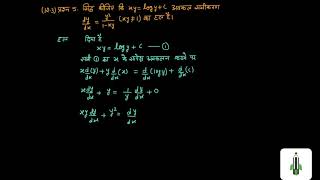 (Q.3) प्रश्न 5. सिद्ध कीजिए कि xy = log y + c अवकल समीकरण
dy/dx = y²/(1-xy) (xy ≠ 1) का हल है।
हल दिया है
xy = log y + c —— ①
समी ① का x के सापेक्ष अवकलन करने पर
x d/dx (y) + y d/dx (x) = d/dx (log y) + d/dx (c)
x dy/dx + y = 1/y dy/dx + 0
xy dy/dx + y² = dy/dx